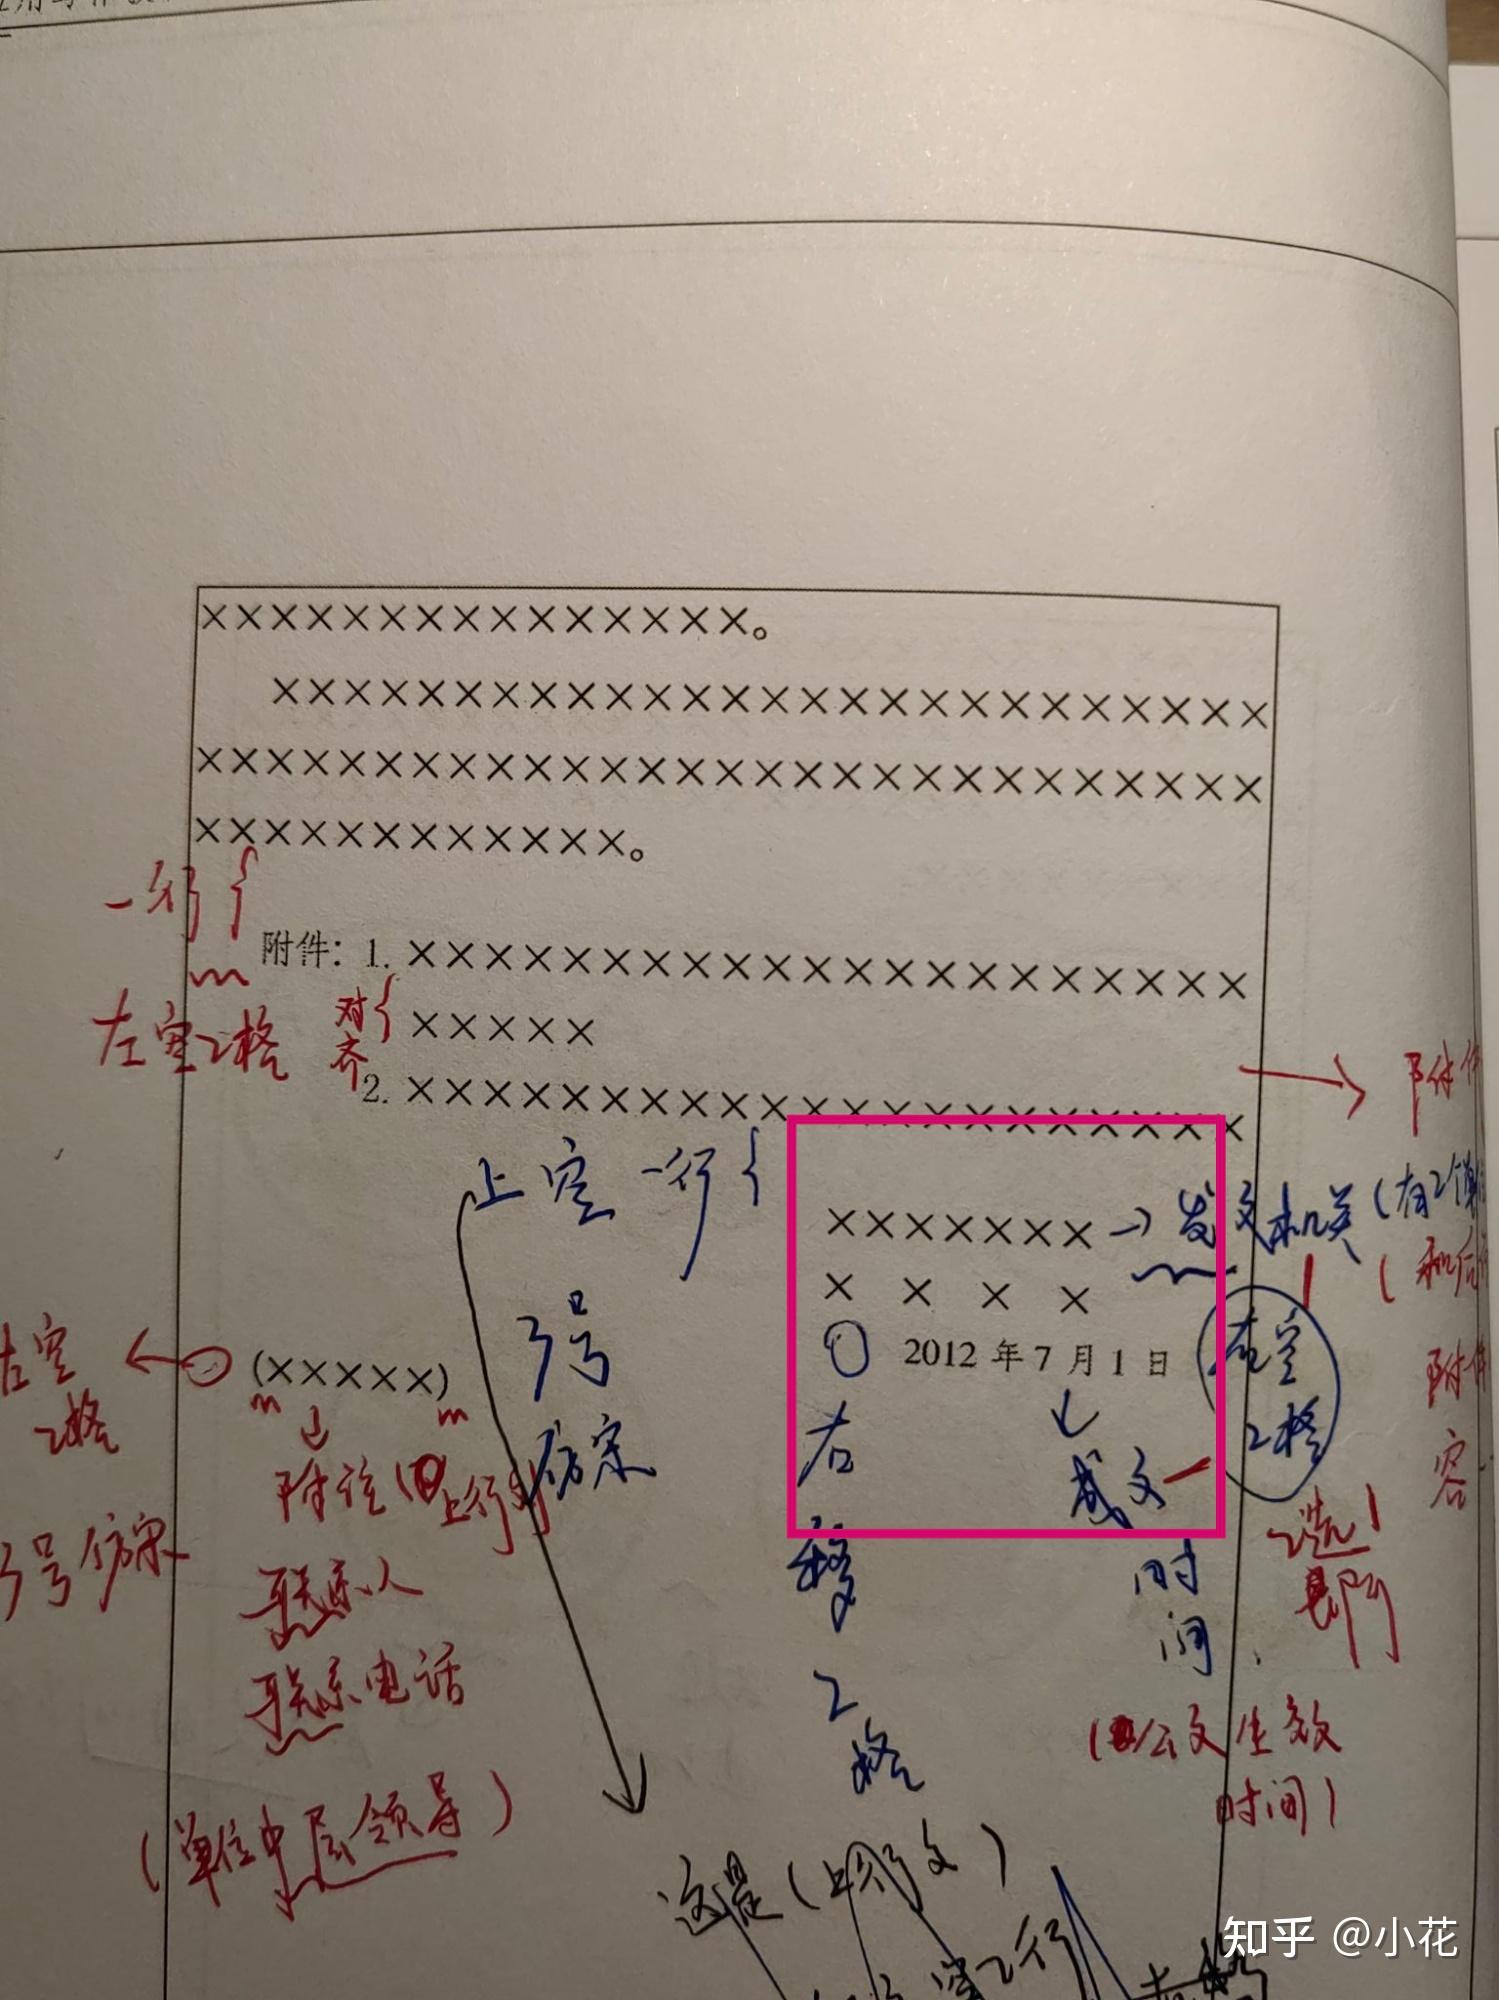 ×××××××××××××××。
×××××××××××××××××××××××××
×××××××××××××××××××××××××××
××××××××××××。
一行
附件：1.×××××××××××××××××××××
左空2格
对齐
×××××
2.×××××××××××××××××××××
附件
上空一行
×××××××
→发文机关(有2个单
××××
3号
仿宋
左空
2格
(×××××)
2012年7月1日
右空
2格
附注(上行文)
右移2格
成文时间
3号仿宋
联系人
联系电话
(公文生效
时间)
(单位中层领导)
这是(上行文)
空2行
知乎 @小花